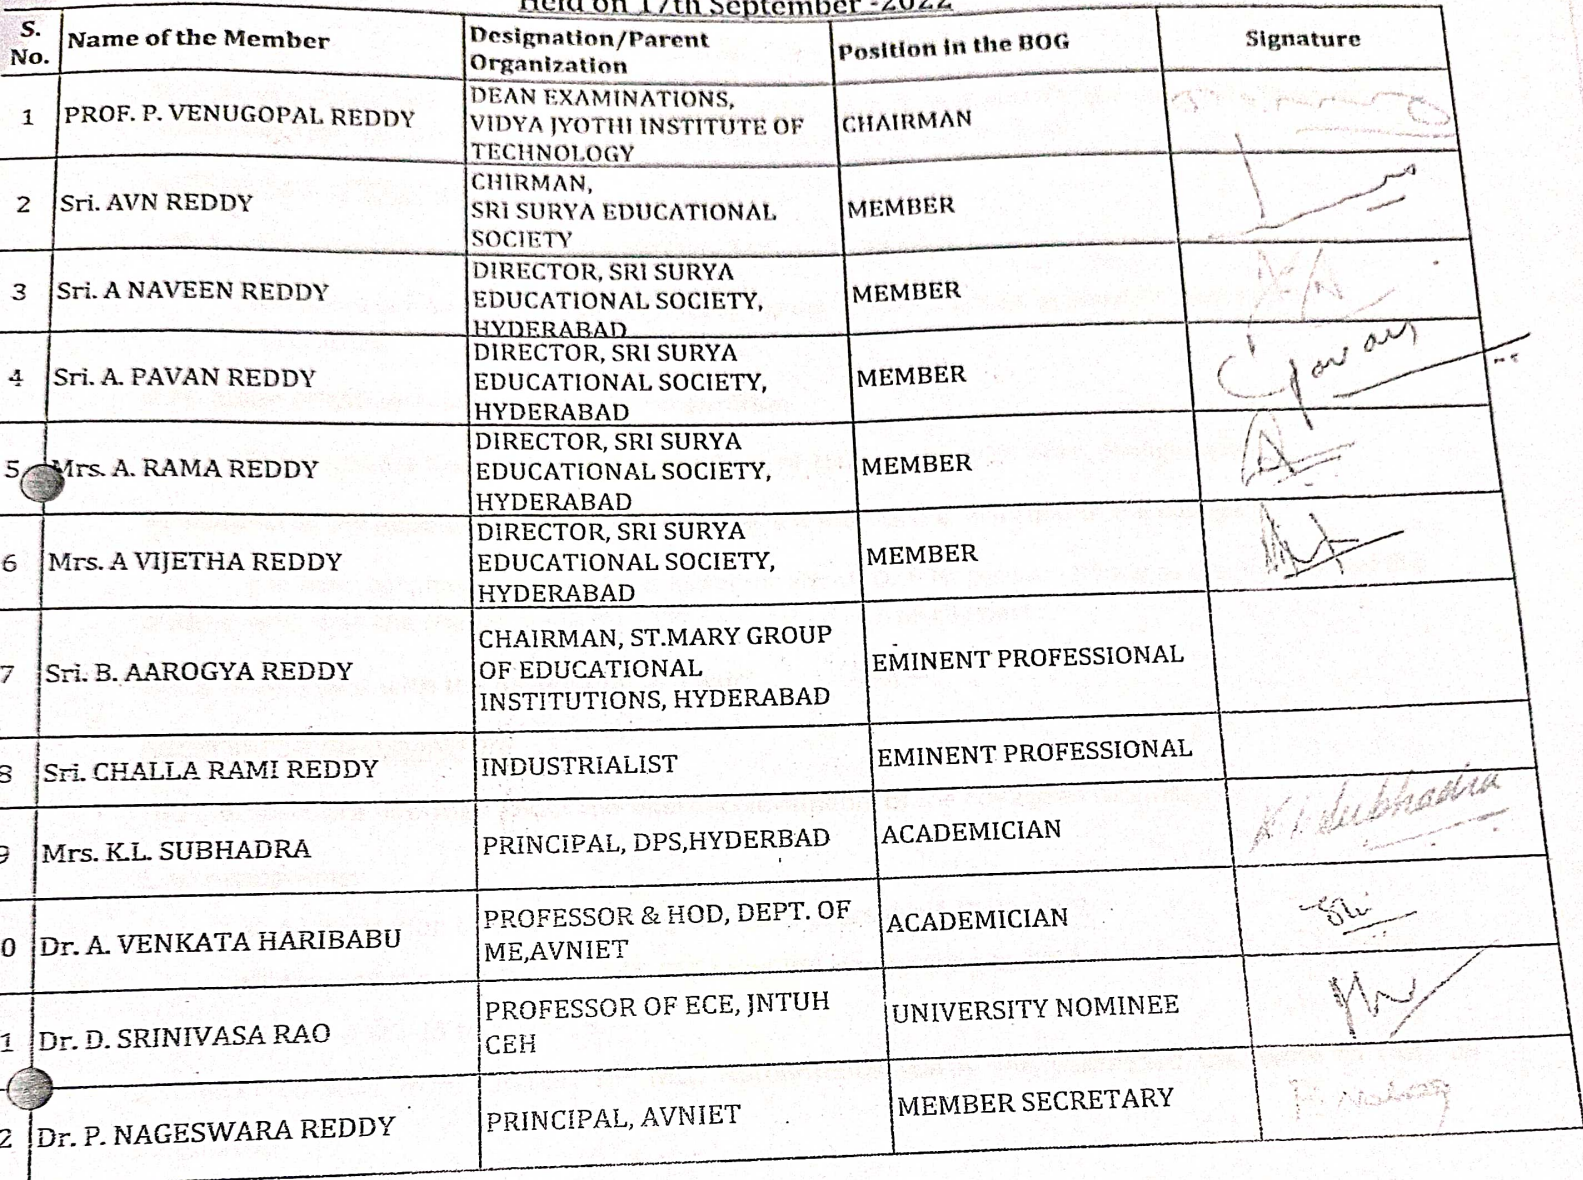 Held on 17th September -2022
S. No. Name of the Member Designation/Parent Organization Position in the BOG Signature
1 PROF. P. VENUGOPAL REDDY DEAN EXAMINATIONS,
VIDYA JYOTHI INSTITUTE OF
TECHNOLOGY
CHAIRMAN
2 Sri. AVN REDDY CHIRMAN,
SRI SURYA EDUCATIONAL
SOCIETY
MEMBER
3 Sri. A NAVEEN REDDY DIRECTOR, SRI SURYA
EDUCATIONAL SOCIETY,
HYDERABAD
MEMBER
4 Sri. A. PAVAN REDDY DIRECTOR, SRI SURYA
EDUCATIONAL SOCIETY,
HYDERABAD
MEMBER
5 Mrs. A. RAMA REDDY DIRECTOR, SRI SURYA
EDUCATIONAL SOCIETY,
HYDERABAD
MEMBER
6 Mrs. A VIJETHA REDDY DIRECTOR, SRI SURYA
EDUCATIONAL SOCIETY,
HYDERABAD
MEMBER
7 Sri. B. AAROGYA REDDY CHAIRMAN, ST.MARY GROUP
OF EDUCATIONAL
INSTITUTIONS, HYDERABAD
EMINENT PROFESSIONAL
8 Sri. CHALLA RAMI REDDY INDUSTRIALIST EMINENT PROFESSIONAL
9 Mrs. K.L. SUBHADRA PRINCIPAL, DPS,HYDERBAD ACADEMICIAN K.L. Subhadra
0 Dr. A. VENKATA HARIBABU PROFESSOR & HOD, DEPT. OF
ME,AVNIET
ACADEMICIAN
1 Dr. D. SRINIVASA RAO PROFESSOR OF ECE, JNTUH
CEH
UNIVERSITY NOMINEE
2 Dr. P. NAGESWARA REDDY PRINCIPAL, AVNIET MEMBER SECRETARY